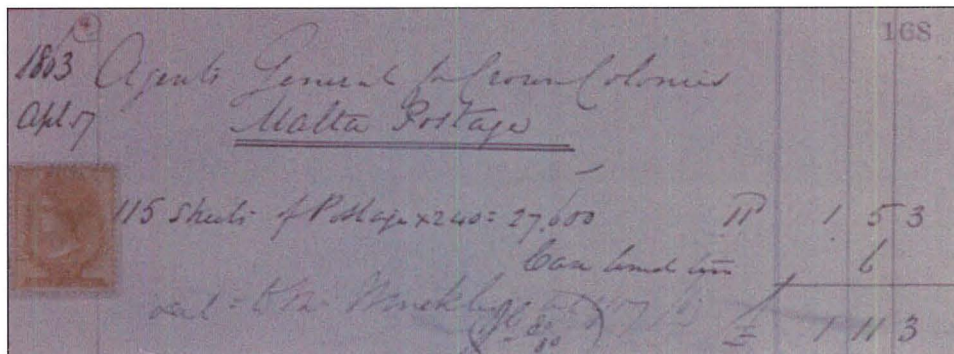 168
1863 Agents General for Crown Colonies
Apl 17 Malta Postage
115 Sheets of Postage x 240 = 27,600 11 1 5 3
Case lined tin 6
1 11 3